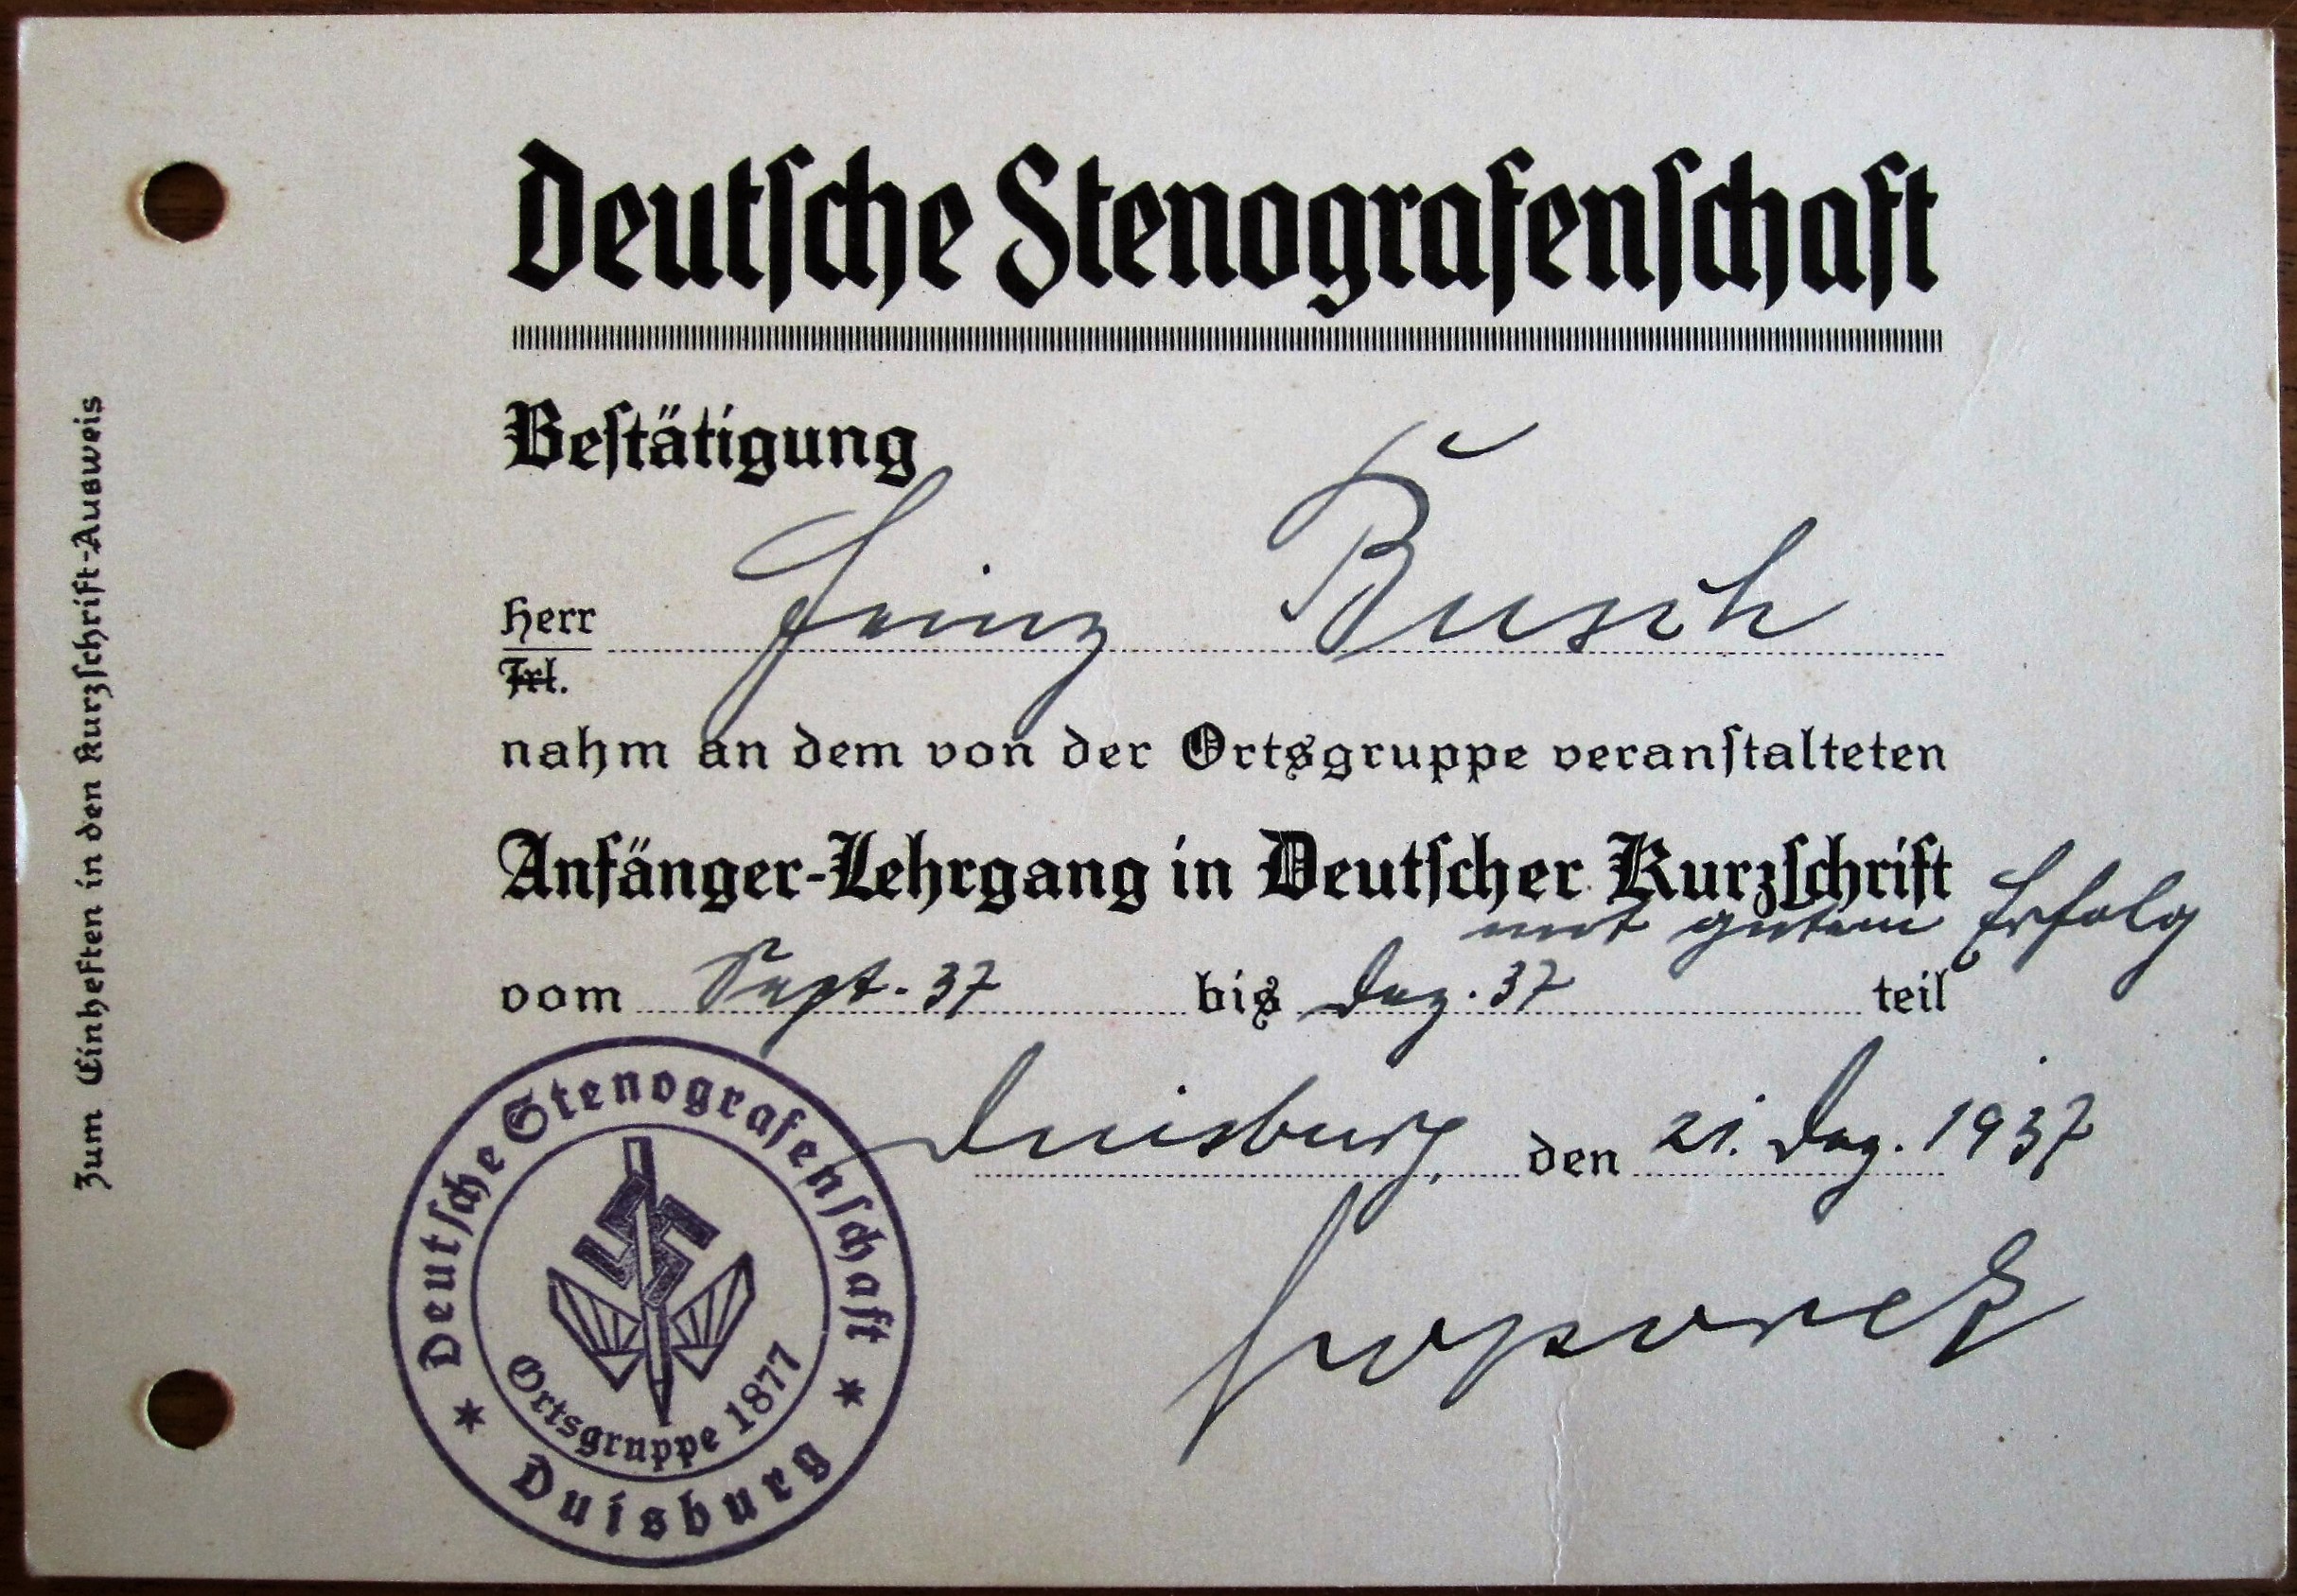 Deutsche Stenografenschaft
Bestätigung
Herr Heinz Busch
Frl.
nahm an dem von der Ortsgruppe veranstalteten
Anfänger-Lehrgang in Deutscher Kurzschrift
mit gutem Erfolg
vom Sept. 37 bis Dez. 37 teil
Duisburg, den 21. Dez. 1937
Deutsche Stenografenschaft
Ortsgruppe 1877
* Duisburg *
Zum Einheften in den Kurzschrift-Ausweis